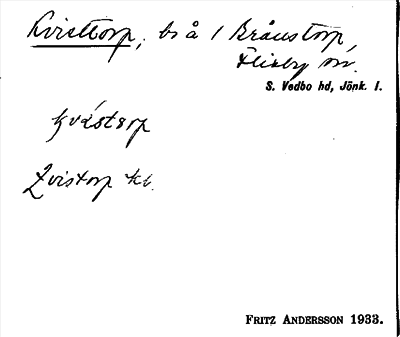 Kvisttorp, bs å / Brånstorp,
Flisby sn.
S. Vedbo hd, Jönk. l.
kvástorp
Qvistorp kb.
FRITZ ANDERSSON 1933.